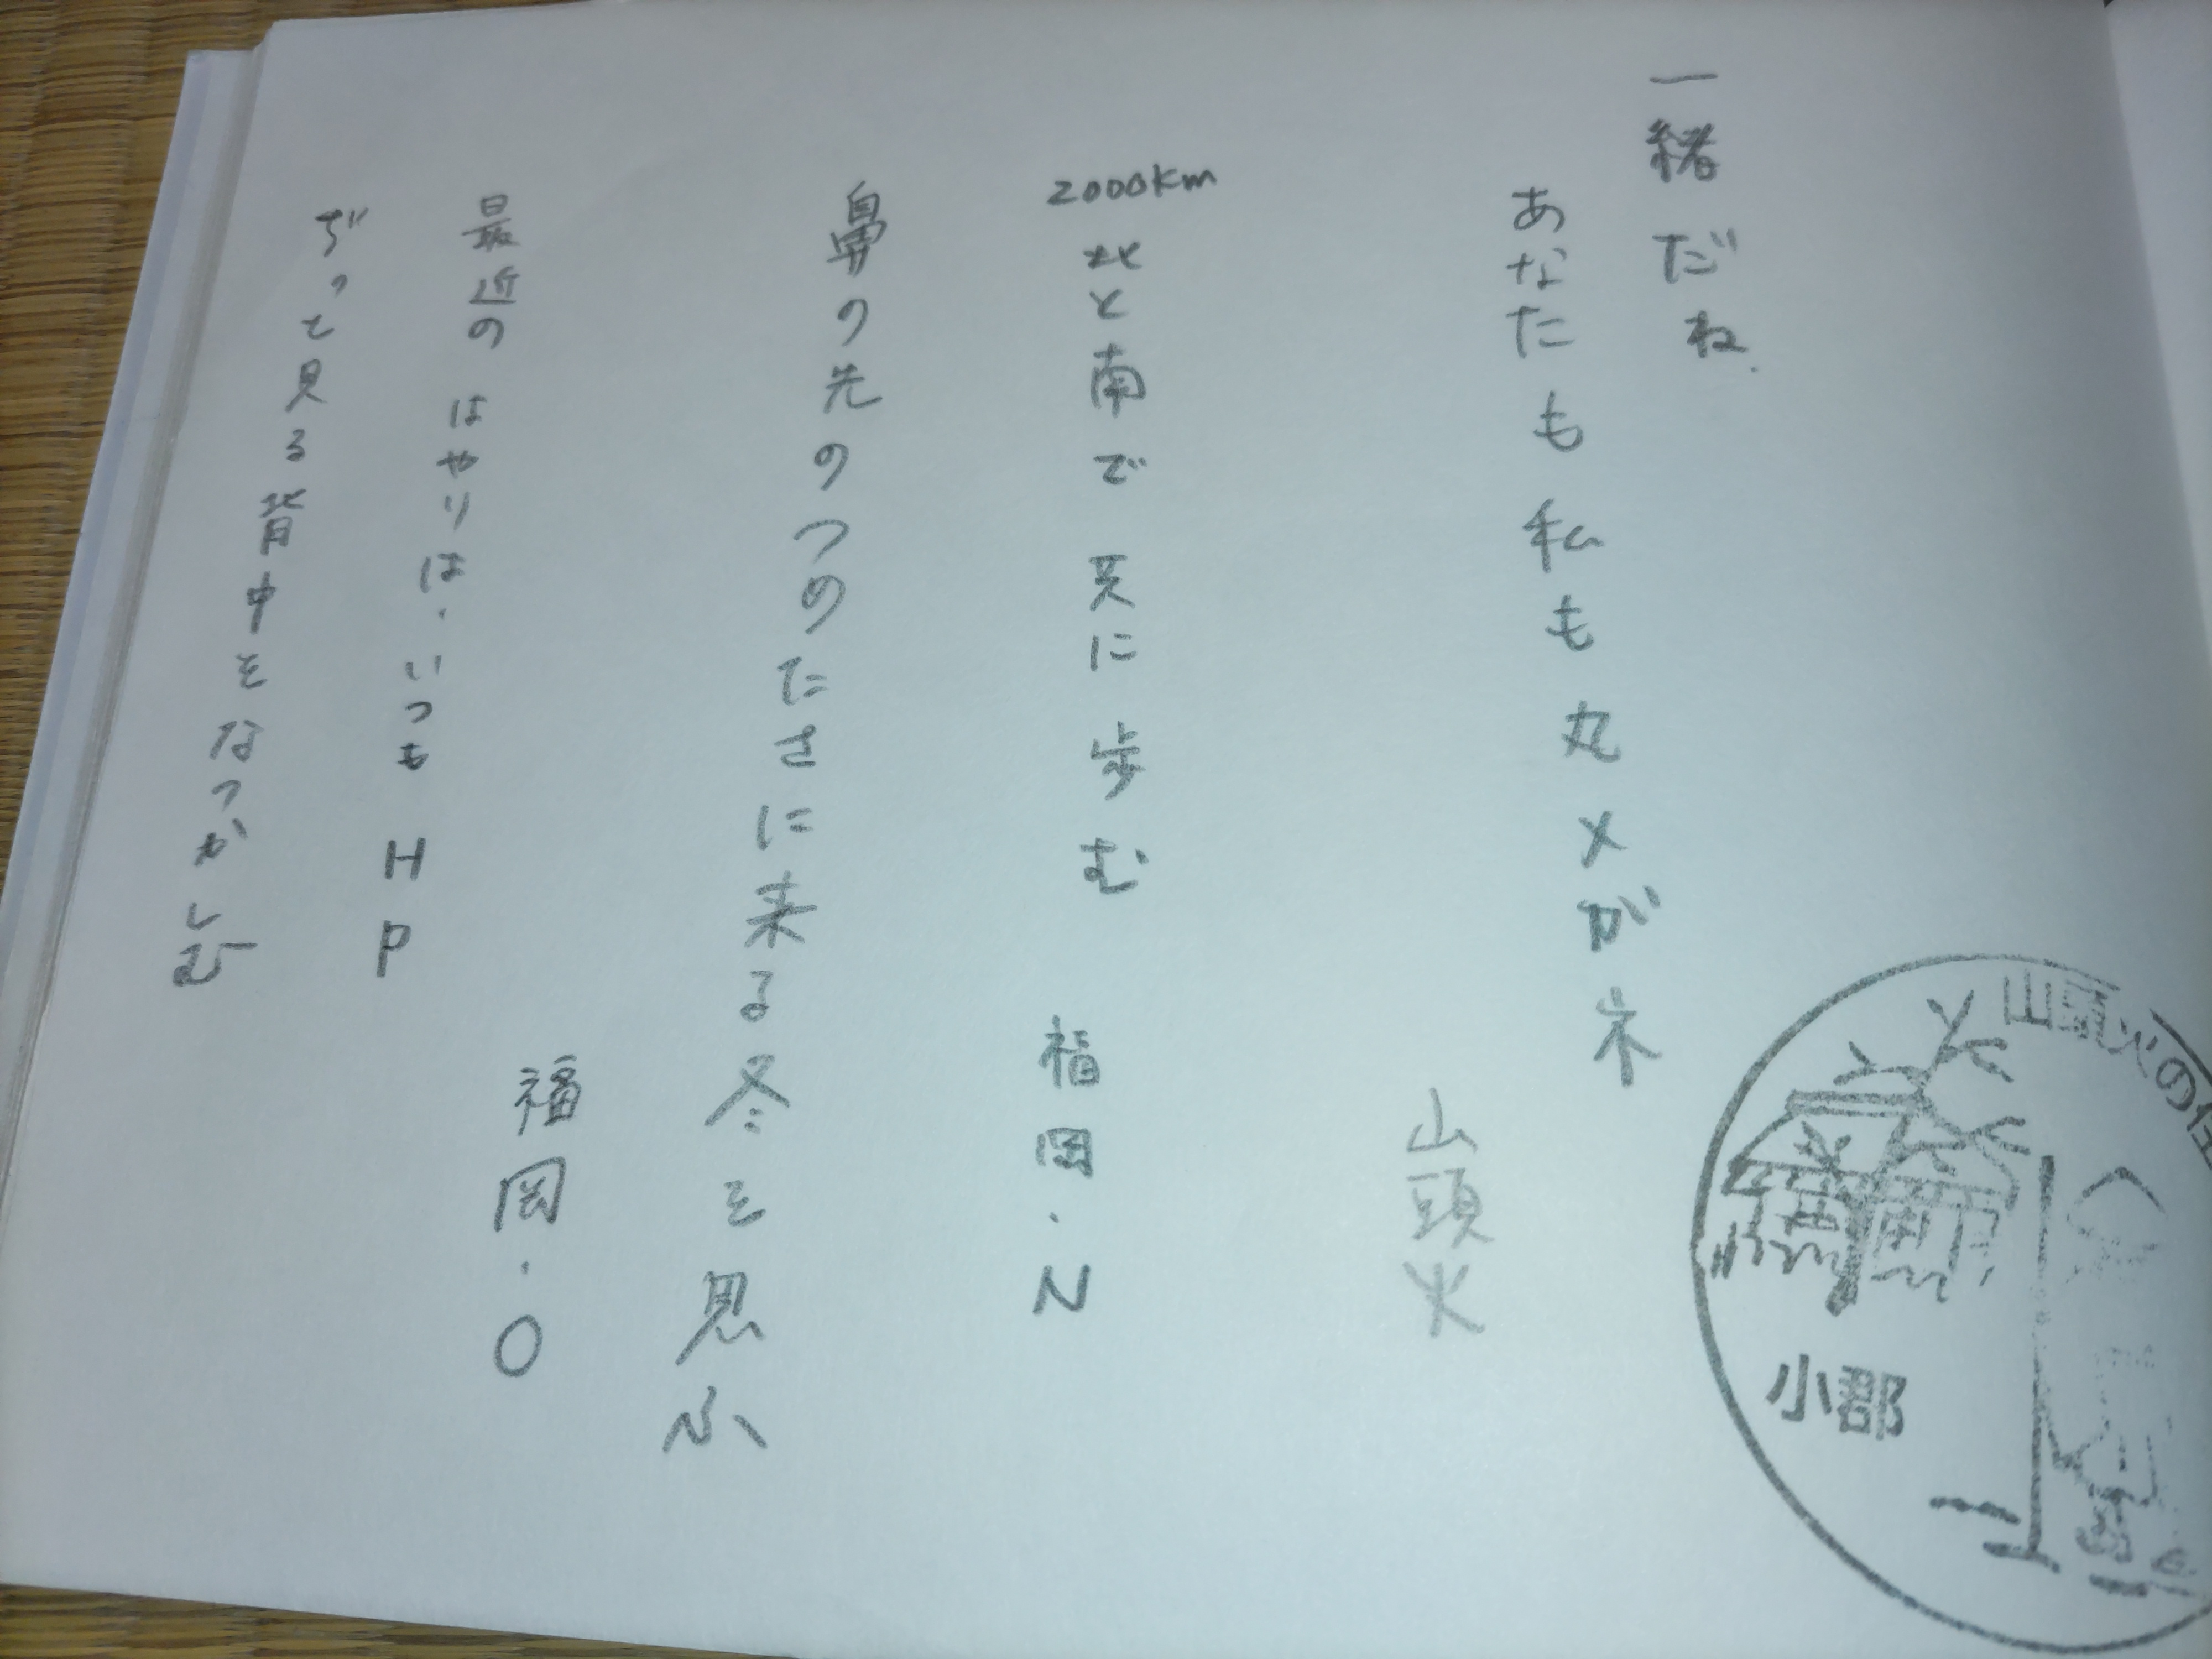 一緒だね.
あなたも私も丸メガネ
山頭火
2000km
北と南で共に歩む
福岡・N
鼻の先のつめたさに来る冬を思ふ
福岡・O
最近のはやりは、いつもHP
ぢっと見る背中をなつかしむ
山頭火の
小郡